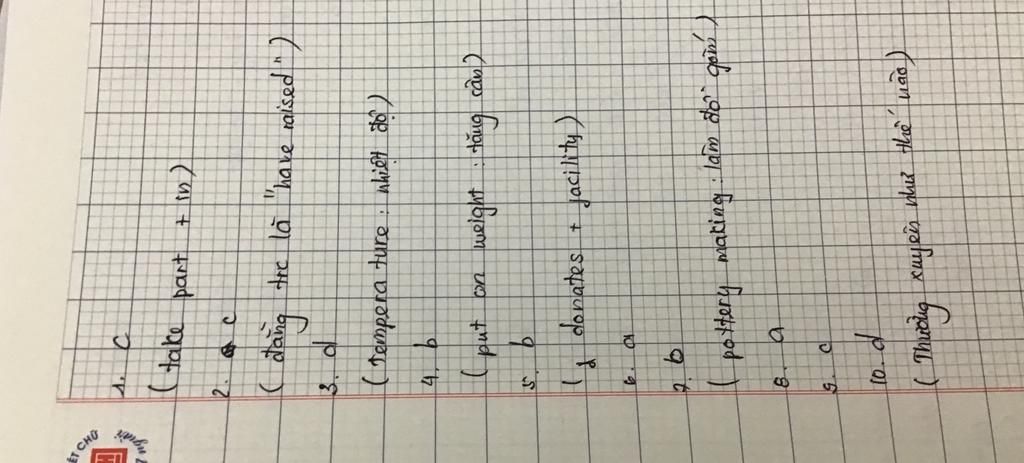 1. c
( take part + in)
2. c
( đằng trc là "have raised")
3. d
( Temperature: nhiệt độ)
4. b
( put on weight : tăng cân)
5. b
( donates + facility)
6. a
7. b
( pottery making: làm đồ gốm)
8. a
9. c
10. d
( Thường xuyên như thế nào)
ẾT CHỮ